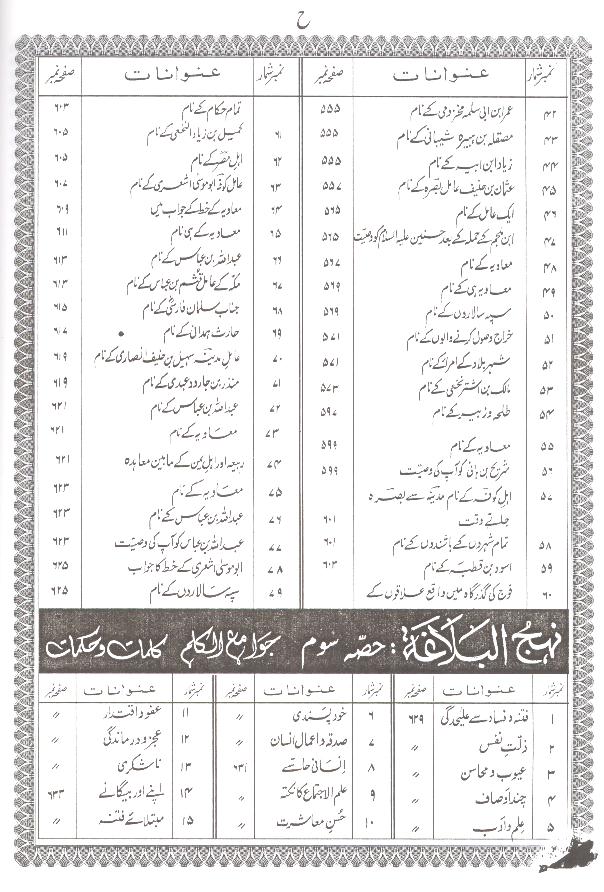 ح
نمبر شمار عنوانات صفحہ نمبر
۴۲ عمر ابن ابی سلمہ مخزومی کے نام ۵۵۵
۴۳ مصقلہ بن ہبیرہ شیبانی کے نام ۵۵۵
۴۴ زیاد ابن ابیہ کے نام ۵۵۵
۴۵ عثمان بن حنیف عامل بصرہ کے نام ۵۵۷
۴۶ ایک عامل کے نام ۵۶۵
۴۷ ابن ملجم کے حملہ کے بعد حسنین علیہ السلام کو وصیت ۵۶۵
۴۸ معاویہ کے نام ۵۶۷
۴۹ معاویہ ہی کے نام ۵۶۹
۵۰ سپہ سالاروں کے نام ۵۶۹
۵۱ خراج وصول کرنے والوں کے نام ۵۷۱
۵۲ شہر بلاد کے امرا کے نام ۵۷۱
۵۳ مالک بن اشتر نخعی کے نام ۵۷۳
۵۴ طلحہ و زبیر کے نام ۵۹۷
۵۵ معاویہ کے نام ۵۹۹
۵۶ شریح بن ہانی کو آپ کی وصیت ۵۹۹
۵۷ اہل کوفہ کے نام مدینہ سے بصرہ
جاتے وقت ۶۰۱
۵۸ تمام شہروں کے باشندوں کے نام ۶۰۱
۵۹ اسود بن قطبہ کے نام ۶۰۳
۶۰ فوج کی گذرگاہ میں واقع علاقوں کے
نمبر شمار عنوانات صفحہ نمبر
تمام حکام کے نام ۶۰۳
۶۱ کمیل بن زیاد النخعی کے نام ۶۰۵
۶۲ اہل مصر کے نام ۶۰۵
۶۳ عامل کوفہ ابو موسیٰ اشعری کے نام ۶۰۷
۶۴ معاویہ کے خط کے جواب میں ۶۰۹
۶۵ معاویہ کے ہی نام ۶۱۱
۶۶ عبداللہ بن عباس کے نام ۶۱۳
۶۷ مکہ کے عامل قثم بن عباس کے نام ۶۱۳
۶۸ جناب سلمان فارسی کے نام ۶۱۵
۶۹ حارث ہمدانی کے نام ۶۱۷
۷۰ عامل مدینہ سہیل بن حنیف انصاری کے نام ۶۱۹
۷۱ منذر بن جارود عبدی کے نام ۶۱۹
۷۲ عبداللہ بن عباس کے نام ۶۲۱
۷۳ معاویہ کے نام ۶۲۱
۷۴ ربیعہ اور اہل یمن کے مابین معاہدہ ۶۲۱
۷۵ معاویہ کے نام ۶۲۳
۷۶ عبداللہ بن عباس کے نام ۶۲۳
۷۷ عبداللہ بن عباس کو آپ کی وصیت ۶۲۳
۷۸ ابو موسیٰ اشعری کے خط کا جواب ۶۲۵
۷۹ سپہ سالاروں کے نام ۶۲۵
نہج البلاغۃ : حصہ سوم جوامع الکلم کلمات و حکمات
نمبر شمار عنوانات صفحہ نمبر
۱ فتنہ و فساد سے علیحدگی ۶۲۹
۲ ذلت نفس 〃
۳ عیوب و محاسن 〃
۴ چند اوصاف 〃
۵ علم و ادب 〃
نمبر شمار عنوانات صفحہ نمبر
۶ خود پسندی 〃
۷ صدقہ و اعمال انسان 〃
۸ انسانی حاسے ۶۳۱
۹ علم الاجتماع کا نکتہ 〃
۱۰ حسن معاشرت 〃
نمبر شمار عنوانات صفحہ نمبر
۱۱ عفو و اقتدار 〃
۱۲ عجز و درماندگی 〃
۱۳ ناشکری 〃
۱۴ اپنے اور بیگانے ۶۳۳
۱۵ مبتلائے فتنہ 〃